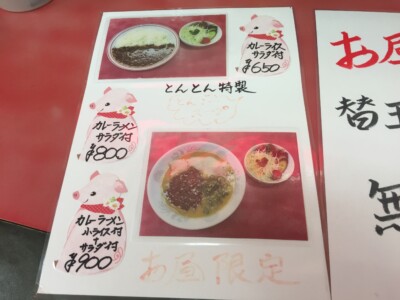 カレーライス
サラダ付
¥650
とんとん特製
カレーラーメン
サラダ付
¥800
カレーラーメン
小ライス付
+
サラダ付
¥900
お昼限定
お昼
替玉
無